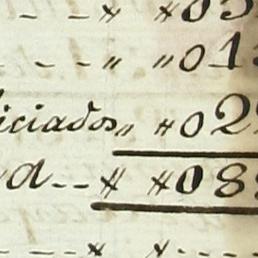 - - - " "03
- - - " "01
iciados " "02
a - - " "08
- - - " " - - - -